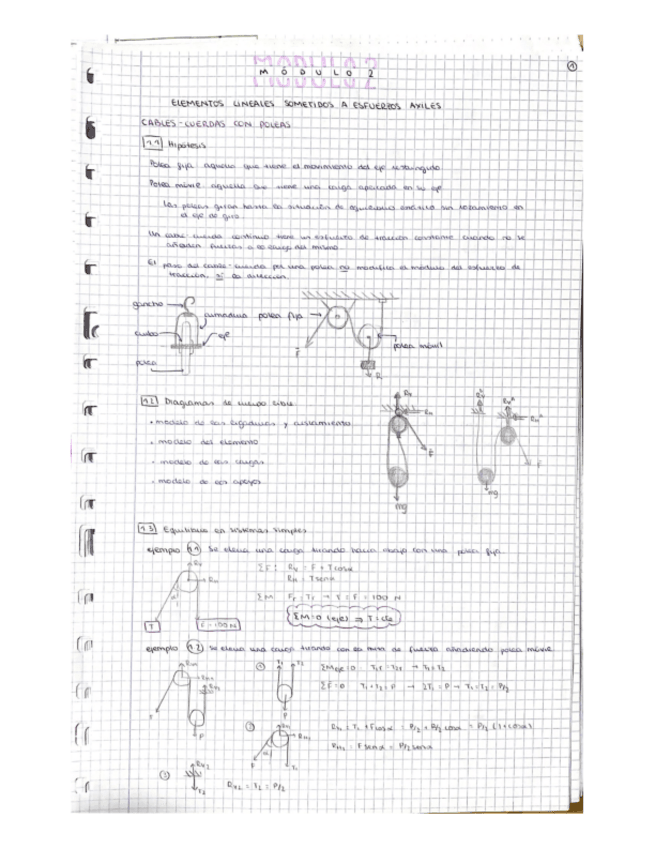 1
MODULO 2
MÓDULO 2
MODULO 2
ELEMENTOS LINEALES SOMETIDOS A ESFUERZOS AXILES
CABLES-CUERDAS CON POLEAS
1.1 Hipótesis
Polea fija aquella que tiene el movimiento del eje restringido
Polea móvil aquella que tiene una carga aplicada en su eje
Las poleas giran hasta la situación de equilibrio estático sin rozamiento en
el eje de giro.
Un cable-cuerda continuo tiene un esfuerzo de tracción constante cuando no se
añaden fuerzas a lo largo del mismo.
El paso del cable-cuerda por una polea no modifica el módulo del esfuerzo de
tracción, sí la dirección.
gancho
armadura
polea fija
eje
polea
polea móvil
F
R
1.2 Diagramas de cuerpo libre
• modelo de los y aislamiento
• modelo del elemento
• modelo de las cargas
• modelo de los apoyos
Rv
RH
F
mg
mg
F
1.3 Equilibrio en sistemas simples
ejemplo 1.1 Se eleva una carga tirando hacia abajo con una polea fija.
ΣF: Rv = F + T cosα
RH = T senα
ΣM Fr = Tr → T = F = 100 N
ΣM=0 (eje) ⇒ T = cte
T
F = 100N
ejemplo 1.2 Se eleva una carga tirando con la mitad de fuerza añadiendo polea móvil
ΣMeje=0 T1r = T2r → T1=T2
ΣF=0 T1+T2=P → 2T1=P → T1=T2=P/2
Rv1 = T1 + Fcosα = P/2 + P/2 cosα = P/2 (1+cosα)
RH1 = F senα = P/2 senα
Rv2 = T2 = P/2